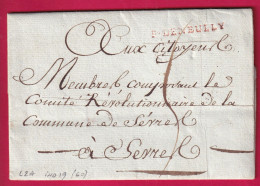 P.DENEUILLY
Aux Citoyens
Membres composant le
Comité Révolutionnaire de la
Commune de Sévres
à Sevres